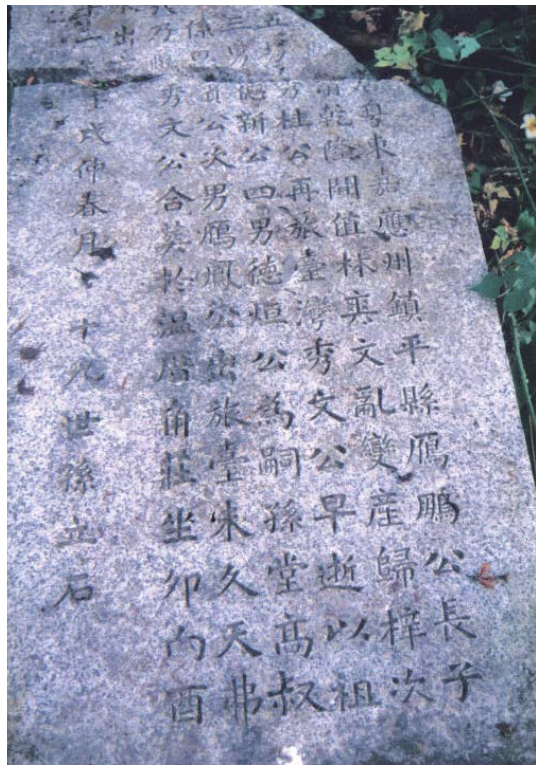 粵東嘉應州鎮平縣鴈鵬公長子
乾隆間值林爽文亂變產歸梓次
秀桂公再旅臺灣秀文公早逝以祖
三男德新公四男德烜公為嗣孫堂高叔
公次男鴈鳳公出旅臺未久天弗
秀文公合葬於溫厝角莊坐卯向酉
戌仲春月 十九世孫立石